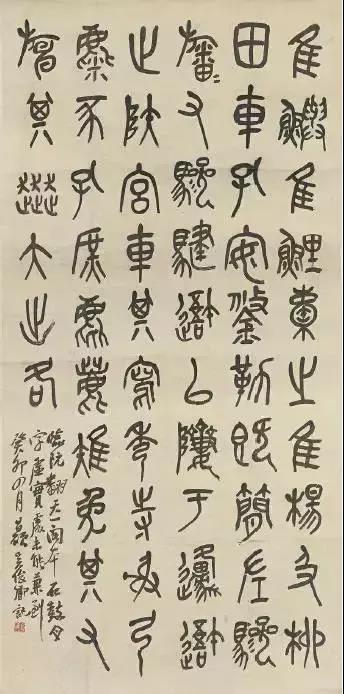 隹鱮隹鯉橐之隹楊及柳
田車孔安鋚勒既簡左驂
旛〻又驂騝避以隮于邍避
止陕宮車其寫秀寺射
麋豕孔庶麀鹿雉兔其又
其大出各
臨阮翻天一閣本石鼓全
字虛實處未能兼到
癸卯四月吳俊卿記